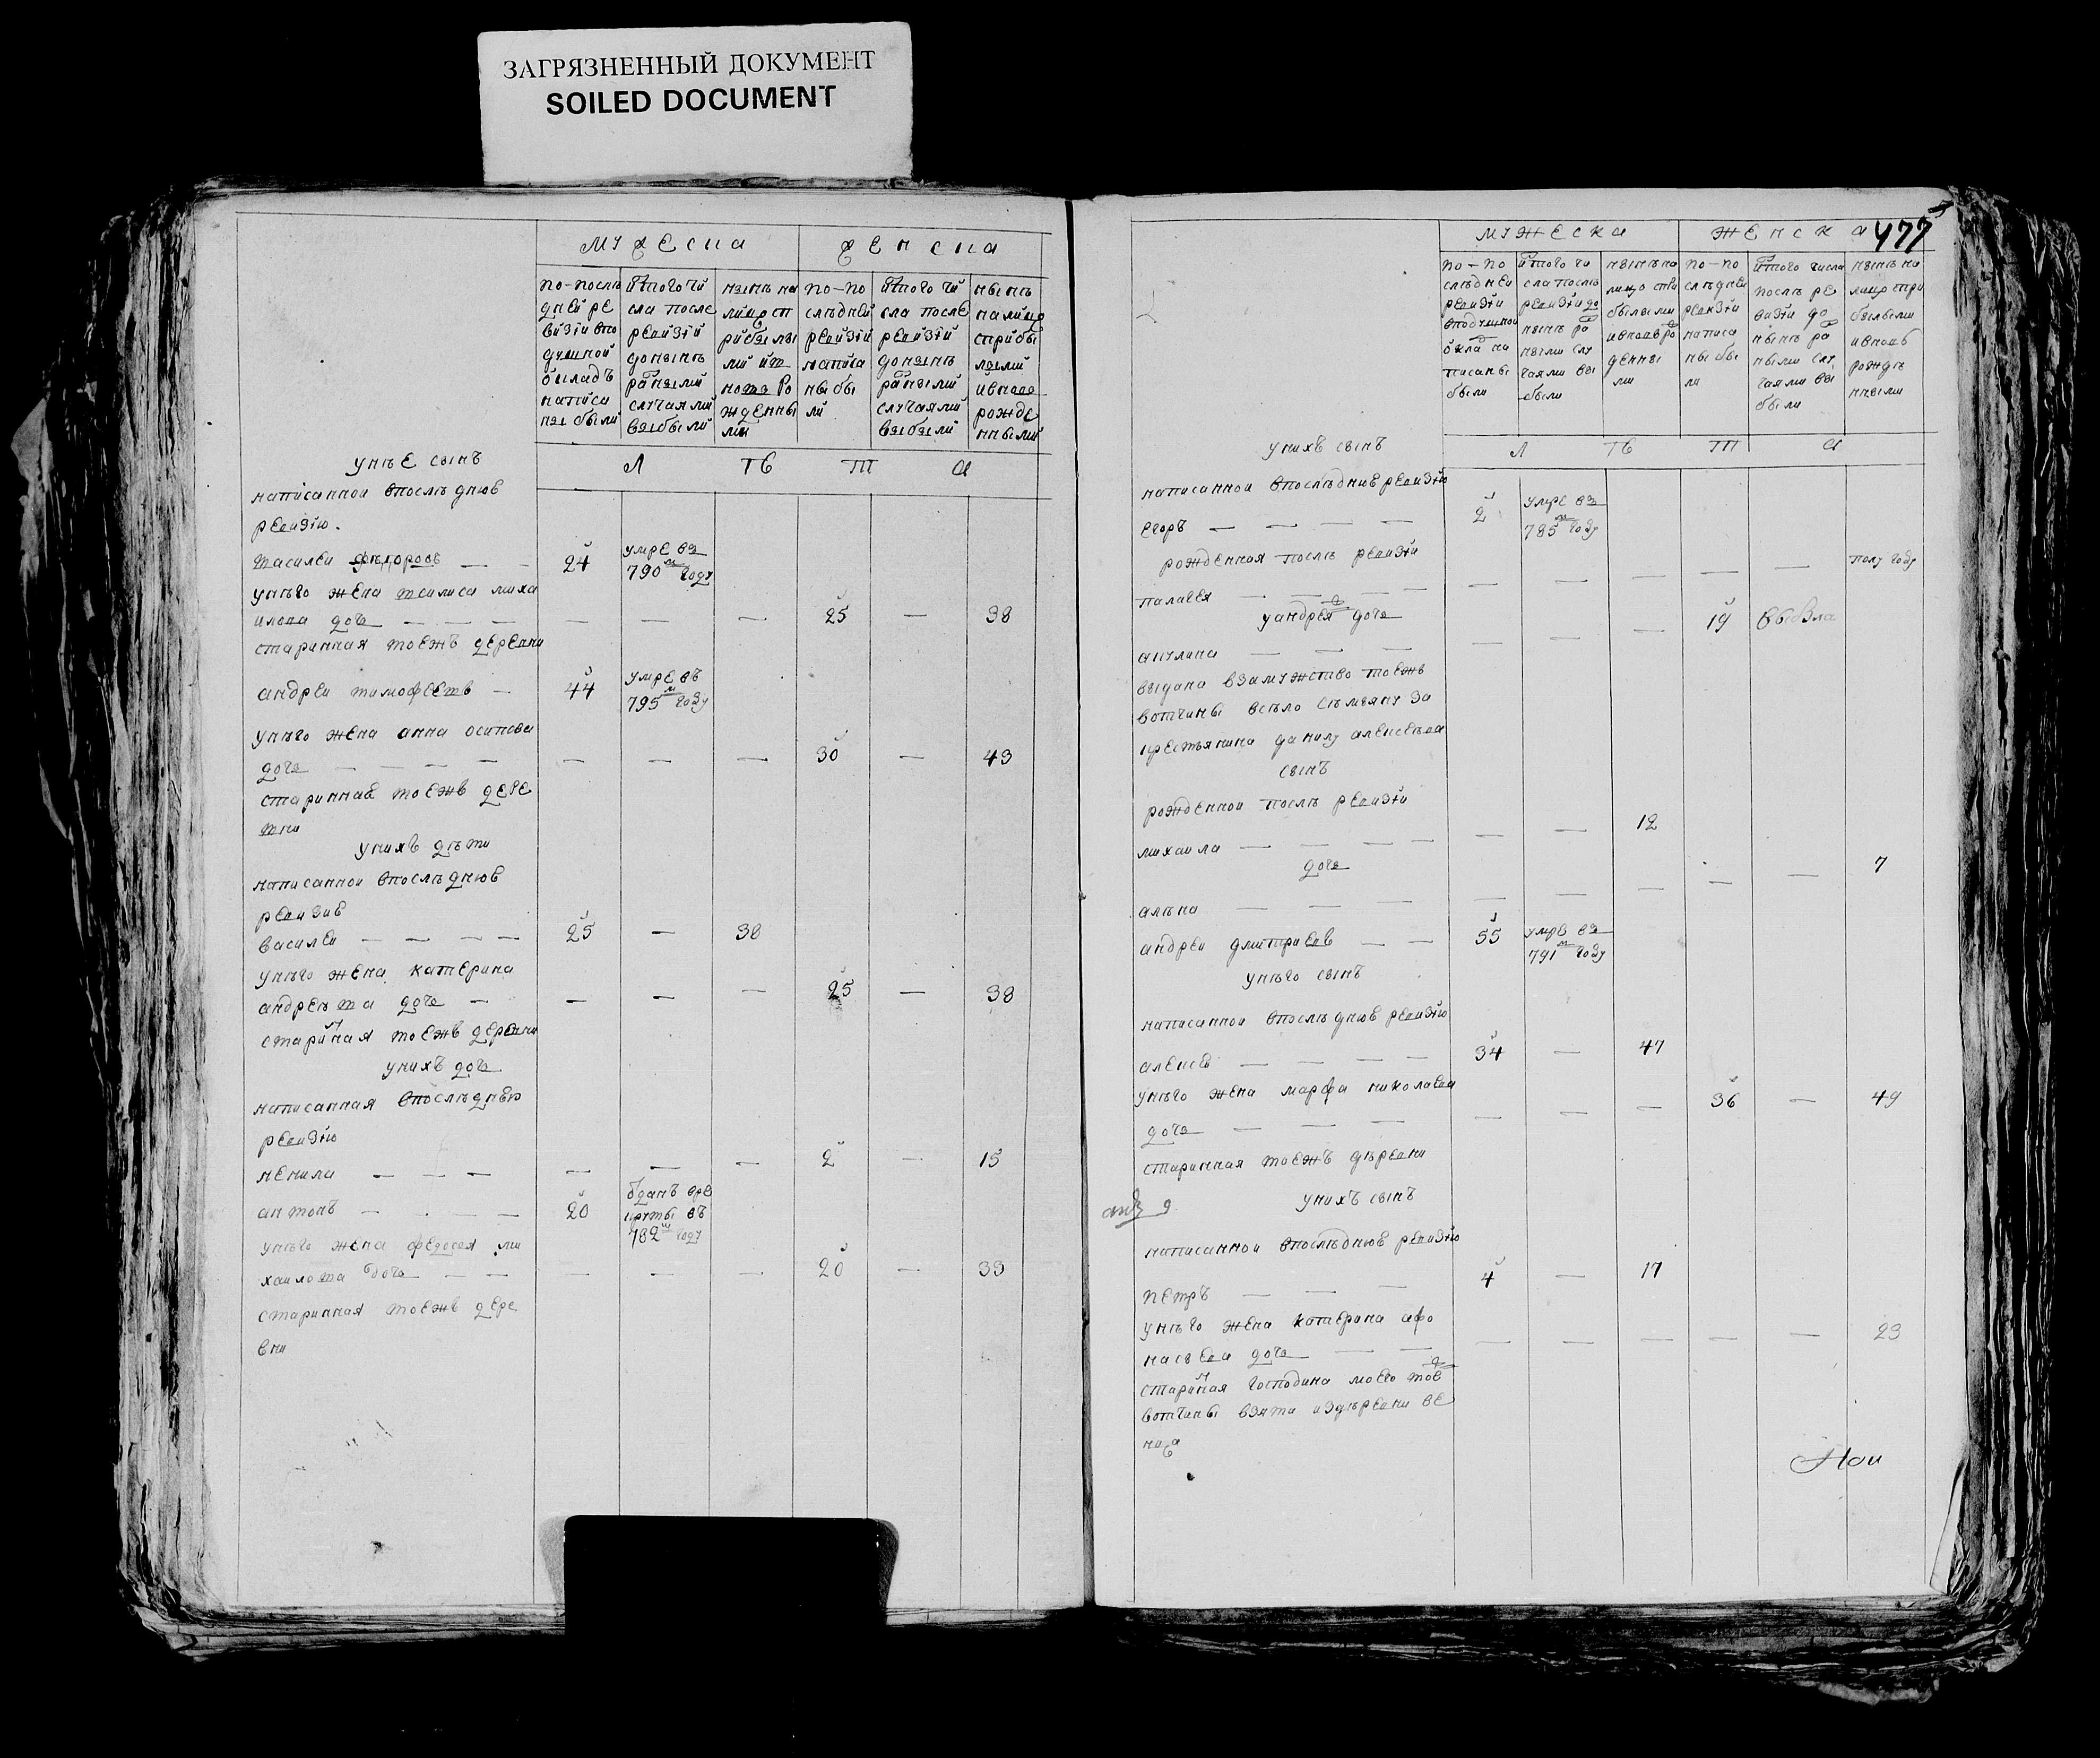 ЗАГРЯЗНЕННЫЙ ДОКУМЕНТ
SOILED DOCUMENT
мужеска
женска
по-послѣ
дней ре
визіи впо
душной
окладъ
написа
ны были
ізтого чи
сла после
ревизіи
донынѣ
разными
случаями
выбыли
нынѣ на
лицо п
рибылы
ми и
новорожденны
ми
по-по
слѣдней
ревизіи
написа
ны бы
ли
ізтого чи
сла после
ревизіи
донынѣ
разными
случаями
выбыли
нынѣ
налицо
сприбы
лыми
ивнов
рожде
нными
л тѣ т а
унѣе сынъ
написанной впослѣднюю
ревизію
василей федоровъ — —
24 умре въ
790м году
унѣго жена василиса миха
илова дочь — — — — — — 25 — 38
старинная тоежъ деревни
андрей тимофеевъ — 44 умре въ
795м году
унѣго жена анна осипова
дочь — — — — — — — 30 — 43
старинная тоежъ дере
вни
унихъ дѣти
написанной впослѣднюю
ревизіе
василей — — — — 25 — 38
унѣго жена катерина
андрѣева дочь — — — — 25 — 38
старинная тоежъ деревни
унихъ дочь
написанная впослѣднею
ревизію
ненила — — — — — — 2 — 15
антонъ — — — — 20 отданъ вре
круты въ
782м году
унѣго жена федосея ми
хаилова дочь — — — — — 20 — 33
старинная тоежъ дере
вни
477
мужеска
женска
по-по
слѣдней
ревизіи
вподушной
окла на
писаны
были
ізтого чи
сла послѣ
ревизіи до
нынѣ ра
ными слу
чаями вы
были
нынѣ на
лицо спри
былыми
ивновьро
жденны
ми
по-по
слѣдней
ревизіи
написа
ны бы
ли
ізтого числа
послѣ ре
визіи до
нынѣ ра
ными слу
чаями вы
были
нынѣ на
лицо спри
былыми
ивновь
рождѣ
нными
л тѣ т а
унихъ сынъ
написанной впослѣднюю ревизію
егоръ — — — — 2 умре въ
785м году
рожденная послѣ ревизіи
палагея — — — — — — — — — полу году
уандрея дочь
акулина — — — — — — 19 выбыла
выдана взамужство тоежъ
вотчины всѣло за
крестьянина данилу алексеева
сынъ
рожденной послѣ ревизіи
михаила — — — — — — 12
дочь
алѣна — — — — — — — — 7
андреи дмитриевъ — — 55 умре въ
791м году
унѣго сынъ
написанной впослѣднюю ревизію
алексѣ — — — — 34 — 47
унѣго жена марфа николаева
дочь — — — — — — 36 — 49
старинная тоежъ дѣревни
унихъ сынъ
написанной впослѣднюю ревизію
петръ — — — 4 — 17
унѣго жена катерина афо
насьева дочь — — — — — — — 23
старинная господина моего тоѣ
вотчины взята издѣревни